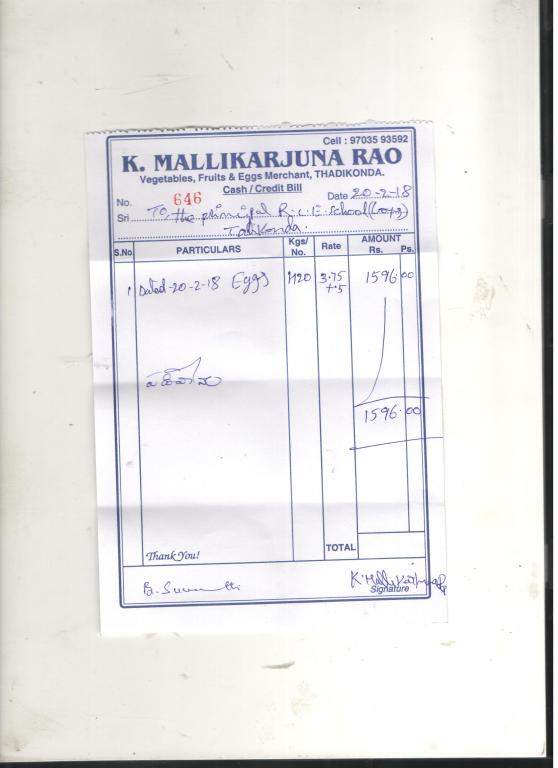 Cell : 97035 93592
K. MALLIKARJUNA RAO
Vegetables, Fruits & Eggs Merchant, THADIKONDA.
Cash / Credit Bill
No. 646 Date 20-2-18
Sri To, the principal R.C.E. School
Tadikonda.
S.No. PARTICULARS Kgs/ No. Rate AMOUNT Rs. Ps.
1 Dated-20-2-18 Eggs 420 3.75 1596.00
+.5
1596.00
Thank You! TOTAL
Signature